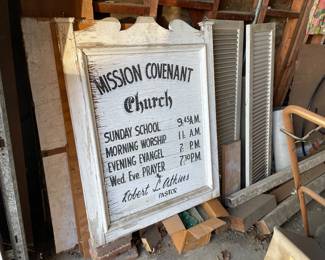 MISSION COVENANT
Church
SUNDAY SCHOOL 9:45 A.M.
MORNING WORSHIP 11 A.M.
EVENING EVANGEL 7 P.M.
Wed. Eve. PRAYER 7:30 P.M.
Robert L. Atkins
PASTOR